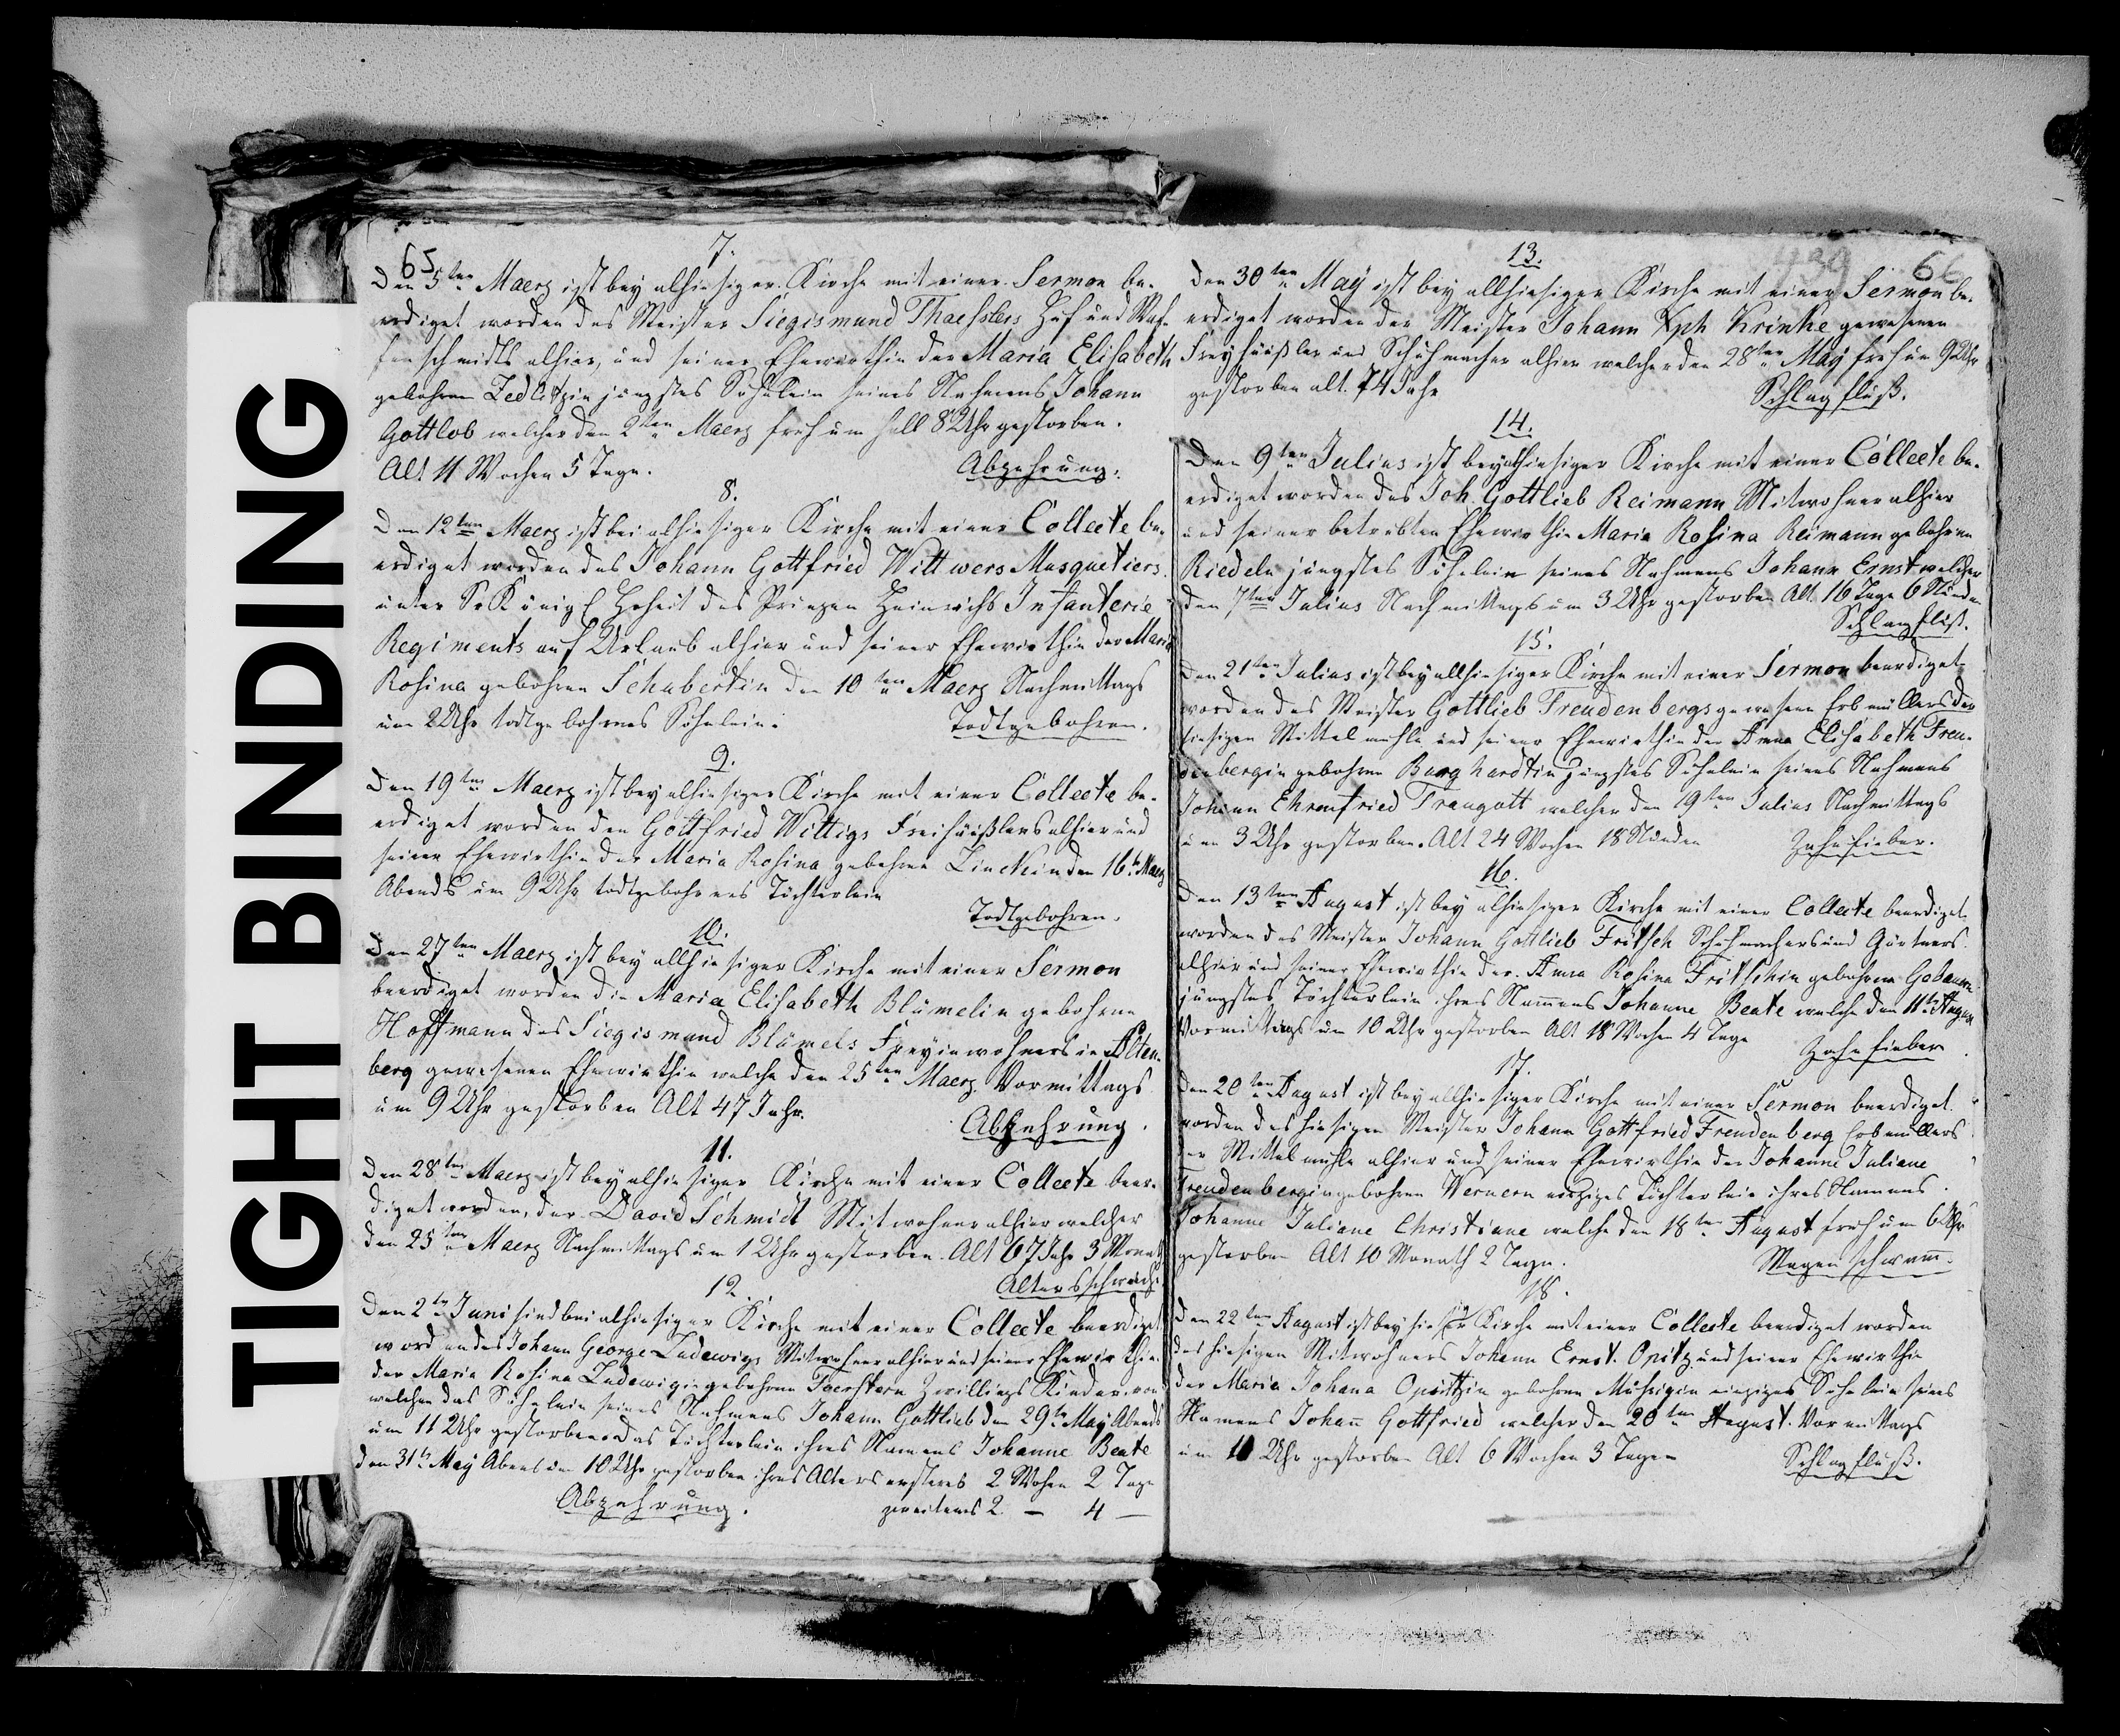 TIGHT BINDING
65
7.
Den 5ten Maerz ist bey alhiesiger Kirche mit einer Sermon be-
erdiget worden des Meister Siegismund Thaesslers Huf und Waf-
fenschmidts alhier, und seiner Ehewirthin der Maria Elisabeth
gebohren Zedlitzin jüngstes Söhnlein seines Nahmens Johann
Gottlob welcher den 2ten Maerz früh um halb 8 Uhr gestorben.
Alt 11 Wochen 5 Tage. Abzehrung.
8.
Den 12ten Maerz ist bei alhiesiger Kirche mit einer Collecte be-
erdiget worden des Johann Gottfried Wittwers Musquetiers
unter Sr Königl Hoheit des Prinzen Heinrichs Infanterie
Regiments auf Urlaub alhier und seiner Ehewirthin der Maria
Rosina gebohren Schubertin den 10ten Maerz Nachmittags
um 2 Uhr todtgebohrnes Söhnlein. Todtgebohren.
9.
Den 19ten Maerz ist bey alhiesiger Kirche mit einer Collecte be-
erdiget worden den Gottfried Wittigs Freihäußlers alhier und
seiner Ehewirthin der Maria Rosina gebohrne Linckin den 16t Maerz
Abends um 9 Uhr todtgebohrnes Töchterlein
Todtgebohren.
10.
Den 27ten Maerz ist bey allhiesiger Kirche mit einer Sermon
beerdiget worden die Maria Elisabeth Blümelin gebohrne
Hoffmann des Siegismund Blümels Freyinwohners in Alten-
berg gewesenen Ehewirthin welche den 25ten Maerz Vormittags
um 9 Uhr gestorben Alt 47 Jahr. Abzehrung.
11.
Den 28ten Maerz ist bey alhiesiger Kirche mit einer Collecte beer-
diget worden, der David Schmidt Mitwohner alhier welcher
den 25ten Maerz Nachmittags um 1 Uhr gestorben. Alt 67 Jahr 3 Monath
Altersschwäche
12.
Den 2ten Juni sind bei alhiesiger Kirche mit einer Collecte beerdiget
worden des Johann George Ludewigs Mitwohner alhier und seiner Ehewirthin
der Maria Rosina Ludewigin gebohrne Foerstern Zwillings Kinder von
welchen das Söhnlein seines Nahmens Johann Gottlieb den 29ten May Abends
um 11 Uhr gestorben. Das Töchterlein ihres Namens Johanne Beate
den 31t May Abends um 10 Uhr gestorben ihres Alters ersteres 2 Wochen 2 Tage
Abzehrung. zweitens 2 — 4 —
439 66
13.
Den 30ten May ist bey allhiesiger Kirche mit einer Sermon be-
erdiget worden der Meister Johann Xph Krinke gewesenen
Freyhäußler und Schuhmacher alhier welcher den 28ten May früh um 9 Uhr
gestorben alt. 74 Jahr Schlagfluß.
14.
Den 9ten Julius ist bey alhiesiger Kirche mit einer Collecte be-
erdiget worden des Joh. Gottlieb Reimann Mitwohner alhier
und seiner betrübten Ehewirthin Maria Rosina Reimann gebohrne
Riedeln jüngstes Söhnlein seines Nahmens Johann Ernst welcher
den 7ten Julius Nachmittags um 3 Uhr gestorben Alt. 16 Tage 6 Stunden
Schlagfluß.
15.
Den 21ten Julius ist bey allhiesiger Kirche mit einer Sermon beerdiget
worden des Meister Gottlieb Freudenbergs gewesenen Erbmüllers der
hiesigen Mittelmühle und seiner Ehewirthin der Anna Elisabeth Freu-
denbergin gebohren Burghardtin jüngstes Söhnlein seines Nahmens
Johann Ehrenfried Traugott welcher den 19ten Julius Nachmittags
um 3 Uhr gestorben. Alt 24 Wochen 18 Stunden Zahnfieber.
16.
Den 13ten August ist bey alhiesiger Kirche mit einer Collecte beerdiget
worden des Meister Johann Gottlieb Fritsch Schuhmachers und Gärtners
alhier und seiner Ehewirthin der Anna Rosina Fritschin gebohren
jüngstes Töchterlein ihres Namens Johanne Beate welche den 11t August
Vormittags um 10 Uhr gestorben Alt 18 Wochen 4 Tage Zahnfieber
17.
Den 20ten August ist bey allhiesiger Kirche mit einer Sermon beerdiget
worden des hiesigen Meister Johann Gottfried Freudenberg Erbmüllers
der Mittelmühle alhier und seiner Ehewirthin der Johanne Juliane
Freudenbergin gebohren Wernern einziges Töchterlein ihres Namens
Johanne Juliane Christiane welche den 18ten August früh um 6 Uhr
gestorben Alt 10 Monath 2 Tage. Magenschwamm.
18.
Den 22ten August ist bey hiesiger Kirche mit einer Collecte beerdiget worden
des hiesigen Mitwohners Johann Ernst Opitz und seiner Ehewirthin
der Maria Johana Opitzin gebohren einziges Söhnlein seines
Namens Johan Gottfried welcher den 20ten August Vormittags
um 10 Uhr gestorben Alt 6 Wochen 3 Tage Schlagfluß.